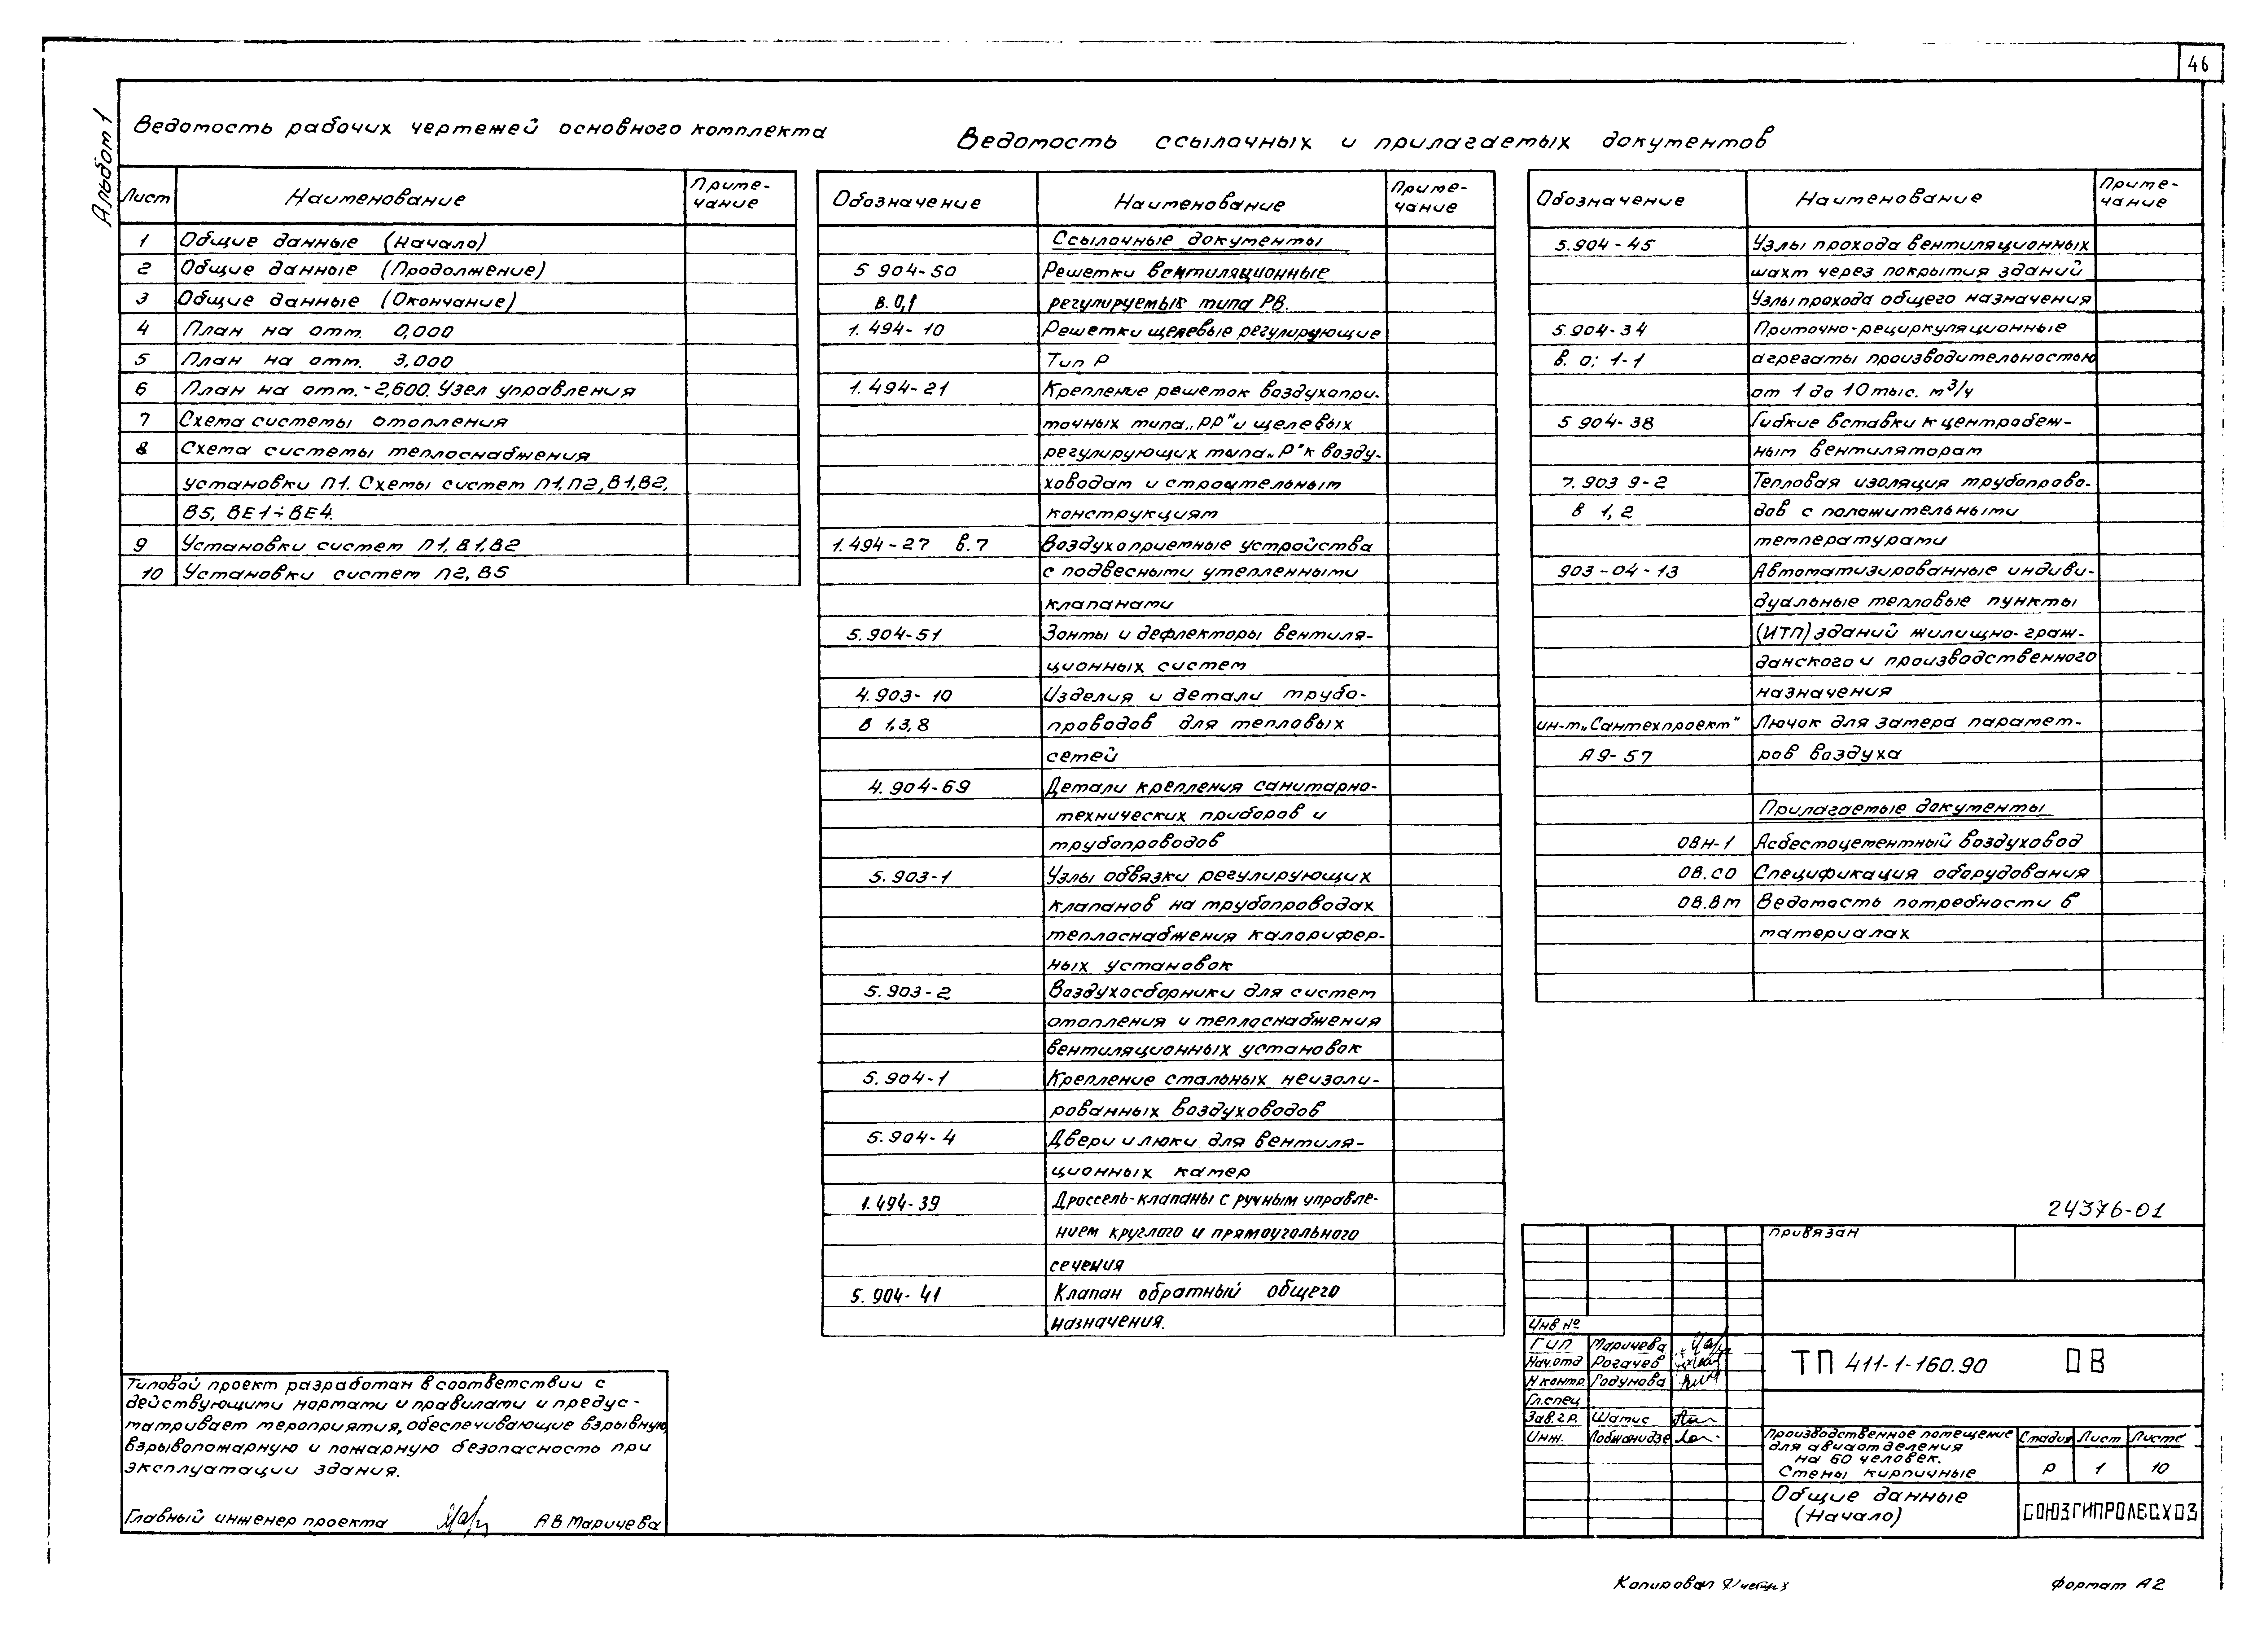 46
Альбом 1
Ведомость рабочих чертежей основного комплекта
Лист Наименование Приме-
чание
1 Общие данные (Начало)
2 Общие данные (Продолжение)
3 Общие данные (Окончание)
4 План на отм. 0,000
5 План на отм. 3,000
6 План на отм. -2,600. Узел управления
7 Схема системы отопления
8 Схема системы теплоснабжения
установки П1. Схемы систем П1, П2, В1, В2,
В5, ВЕ1÷ВЕ4.
9 Установки систем П1, В1, В2
10 Установки систем П2, В5
Ведомость ссылочных и прилагаемых документов
Обозначение Наименование Приме-
чание
Ссылочные документы
5 904-50 Решетки вентиляционные
в. 0,1 регулируемые типа РВ.
1. 494-10 Решетки щелевые регулирующие
Тип Р
1. 494-21 Крепление решеток воздухопри-
точных типа „РР" и щелевых
регулирующих типа „Р" к возду-
ховодам и строительным
конструкциям
1. 494-27 в. 7 Воздухоприемные устройства
с подвесными утепленными
клапанами
5. 904-51 Зонты и дефлекторы вентиля-
ционных систем
4. 903-10 Изделия и детали трубо-
в 1,3,8 проводов для тепловых
сетей
4. 904-69 Детали крепления санитарно-
технических приборов и
трубопроводов
5. 903-1 Узлы обвязки регулирующих
клапанов на трубопроводах
теплоснабжения калорифер-
ных установок
5. 903-2 Воздухосборники для систем
отопления и теплоснабжения
вентиляционных установок
5. 904-1 Крепление стальных неизоли-
рованных воздуховодов
5. 904-4 Двери и люки для вентиля-
ционных камер
1. 494-39 Дроссель-клапаны с ручным управле-
нием круглого и прямоугольного
сечения
5. 904-41 Клапан обратный общего
назначения.
Обозначение Наименование Приме-
чание
5.904-45 Узлы прохода вентиляционных
шахт через покрытия зданий
Узлы прохода общего назначения
5.904-34 Приточно-рециркуляционные
в. 0; 1-1 агрегаты производительностью
от 1 до 10 тыс. м³/ч
5 904-38 Гибкие вставки к центробеж-
ным вентиляторам
7. 903 9-2 Тепловая изоляция трубопрово-
в 1, 2 дов с положительными
температурами
903-04-13 Автоматизированные индиви-
дуальные тепловые пункты
(ИТП) зданий жилищно-граж-
данского и производственного
назначения
ин-т „Сантехпроект" Лючок для замера парамет-
А9-57 ров воздуха
Прилагаемые документы
ОВН-1 Асбестоцементный воздуховод
ОВ.СО Спецификация оборудования
ОВ.ВМ Ведомость потребности в
материалах
Типовой проект разработан в соответствии с
действующими нормами и правилами и предус-
матривает мероприятия, обеспечивающие взрывную,
взрывопожарную и пожарную безопасность при
эксплуатации здания.
Главный инженер проекта А.В. Маричева
24376-01
Привязан
Инв №
ГИП Маричева
Нач.отд Рогачев
Н контр Годунова
Гл.спец
Зав.гр. Шатис
Инж. Лобжанидзе
ТП 411-1-160.90 ОВ
Производственное помещение
для авиаотделения
на 60 человек.
Стены кирпичные
Стадия Лист Листо
Р 1 10
Общие данные
(Начало)
СОЮЗГИПРОЛЕСХОЗ
Копировал
Формат А2